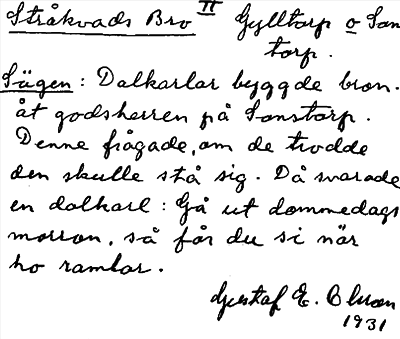 Stråkvads Bro II Gylltorp o Son
torp.
Sägen: Dalkarlar byggde bron
åt godsherren på Sonstorp.
Denne frågade, om de trodde
den skulle stå sig. Då svarade
en dalkarl: Gå ut dommedags
morron, så får du si när
ho ramlar.
Gustaf E. Olsson
1931